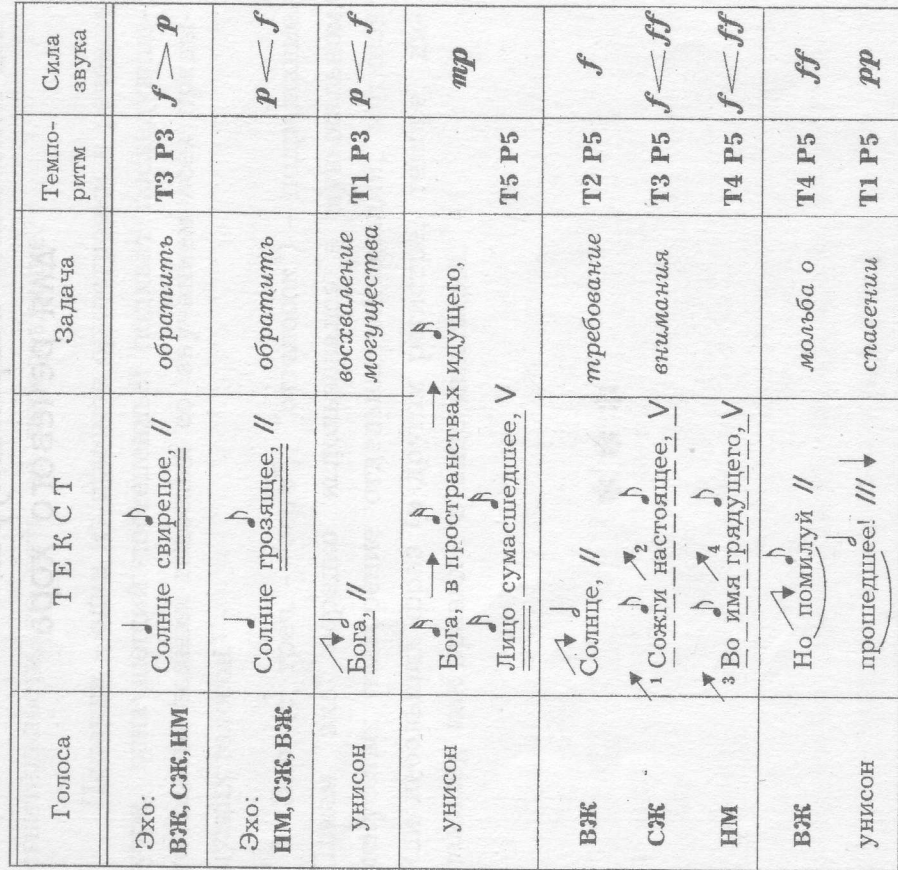 Голоса Т Е К С Т Задача Темпо-ритм Сила звука
Эхо: ВЖ, СЖ, НМ Солнце свирепое, // обратить Т3 Р3 f > p
Эхо: НМ, СЖ, ВЖ Солнце грозящее, // обратить p < f
унисон Бога, // восхваление могущества Т1 Р3 p < f
унисон Бога, в пространствах идущего, mp
Лицо сумасшедшее, V Т5 Р5
ВЖ Солнце, // требование Т2 Р5 f
СЖ 1 Сожги 2 настоящее, V внимания Т3 Р5 f < ff
НМ 3 Во имя 4 грядущего, V Т4 Р5 f < ff
ВЖ Но помилуй // мольба о Т4 Р5 ff
унисон прошедшее! /// спасении Т1 Р5 pp